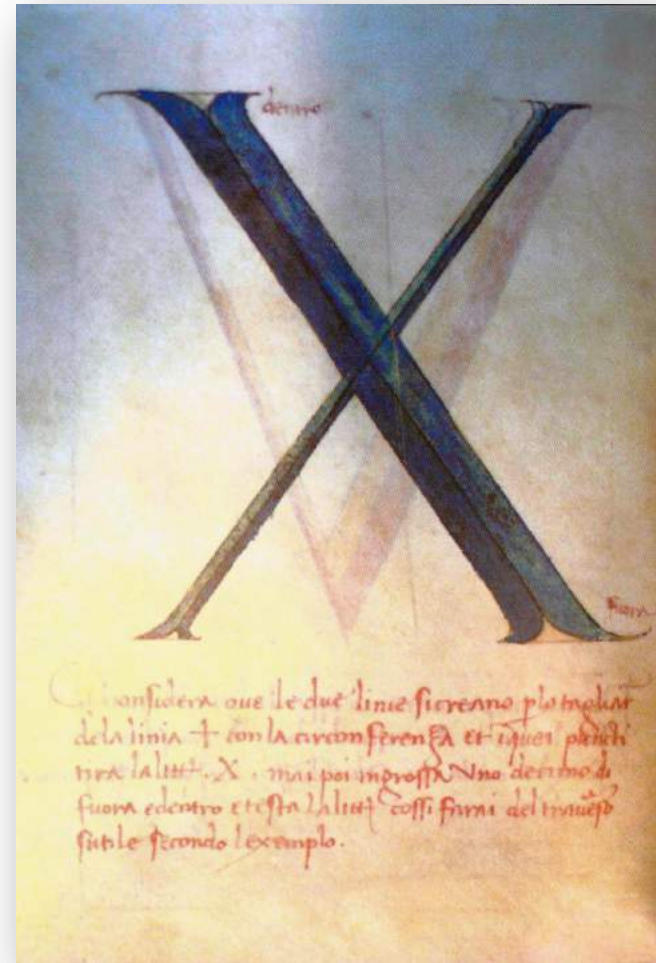 X
dentro
fuora
Considera oue le due linie si creano p lo tagliar
de la linia + con la circonferenza et i quei puncti
tira la litt. X. mai poi ingrossa Uno decimo di
fuora e dentro e testa la litt cossi farai del
sutile secondo l exemplo.